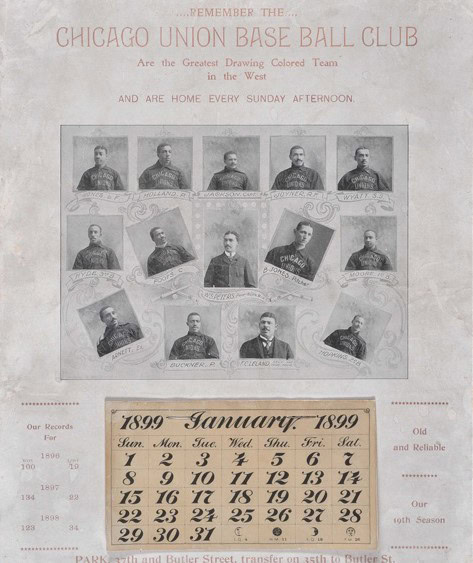 ....REMEMBER THE...
CHICAGO UNION BASE BALL CLUB
Are the Greatest Drawing Colored Team
in the West
AND ARE HOME EVERY SUNDAY AFTERNOON.
HOLLAND, P.
JACKSON, CAPT.
JOYNER, R.F.
WYATT, S.S.
B. JONES, P. & L.F.
MOORE
W.S. PETERS
BUCKNER, P.
LELAND
HOPKINS, P.
Our Records
For
1896
WON LOST
100 19
1897
134 23
1898
123 34
1899 January. 1899
Sun. Mon. Tue. Wed. Thu. Fri. Sat.
1 2 3 4 5 6 7
8 9 10 11 12 13 14
15 16 17 18 19 20 21
22 23 24 25 26 27 28
29 30 31
Old
and Reliable
Our
19th Season
PARK, 37th and Butler Street, transfer on 35th to Butler St.